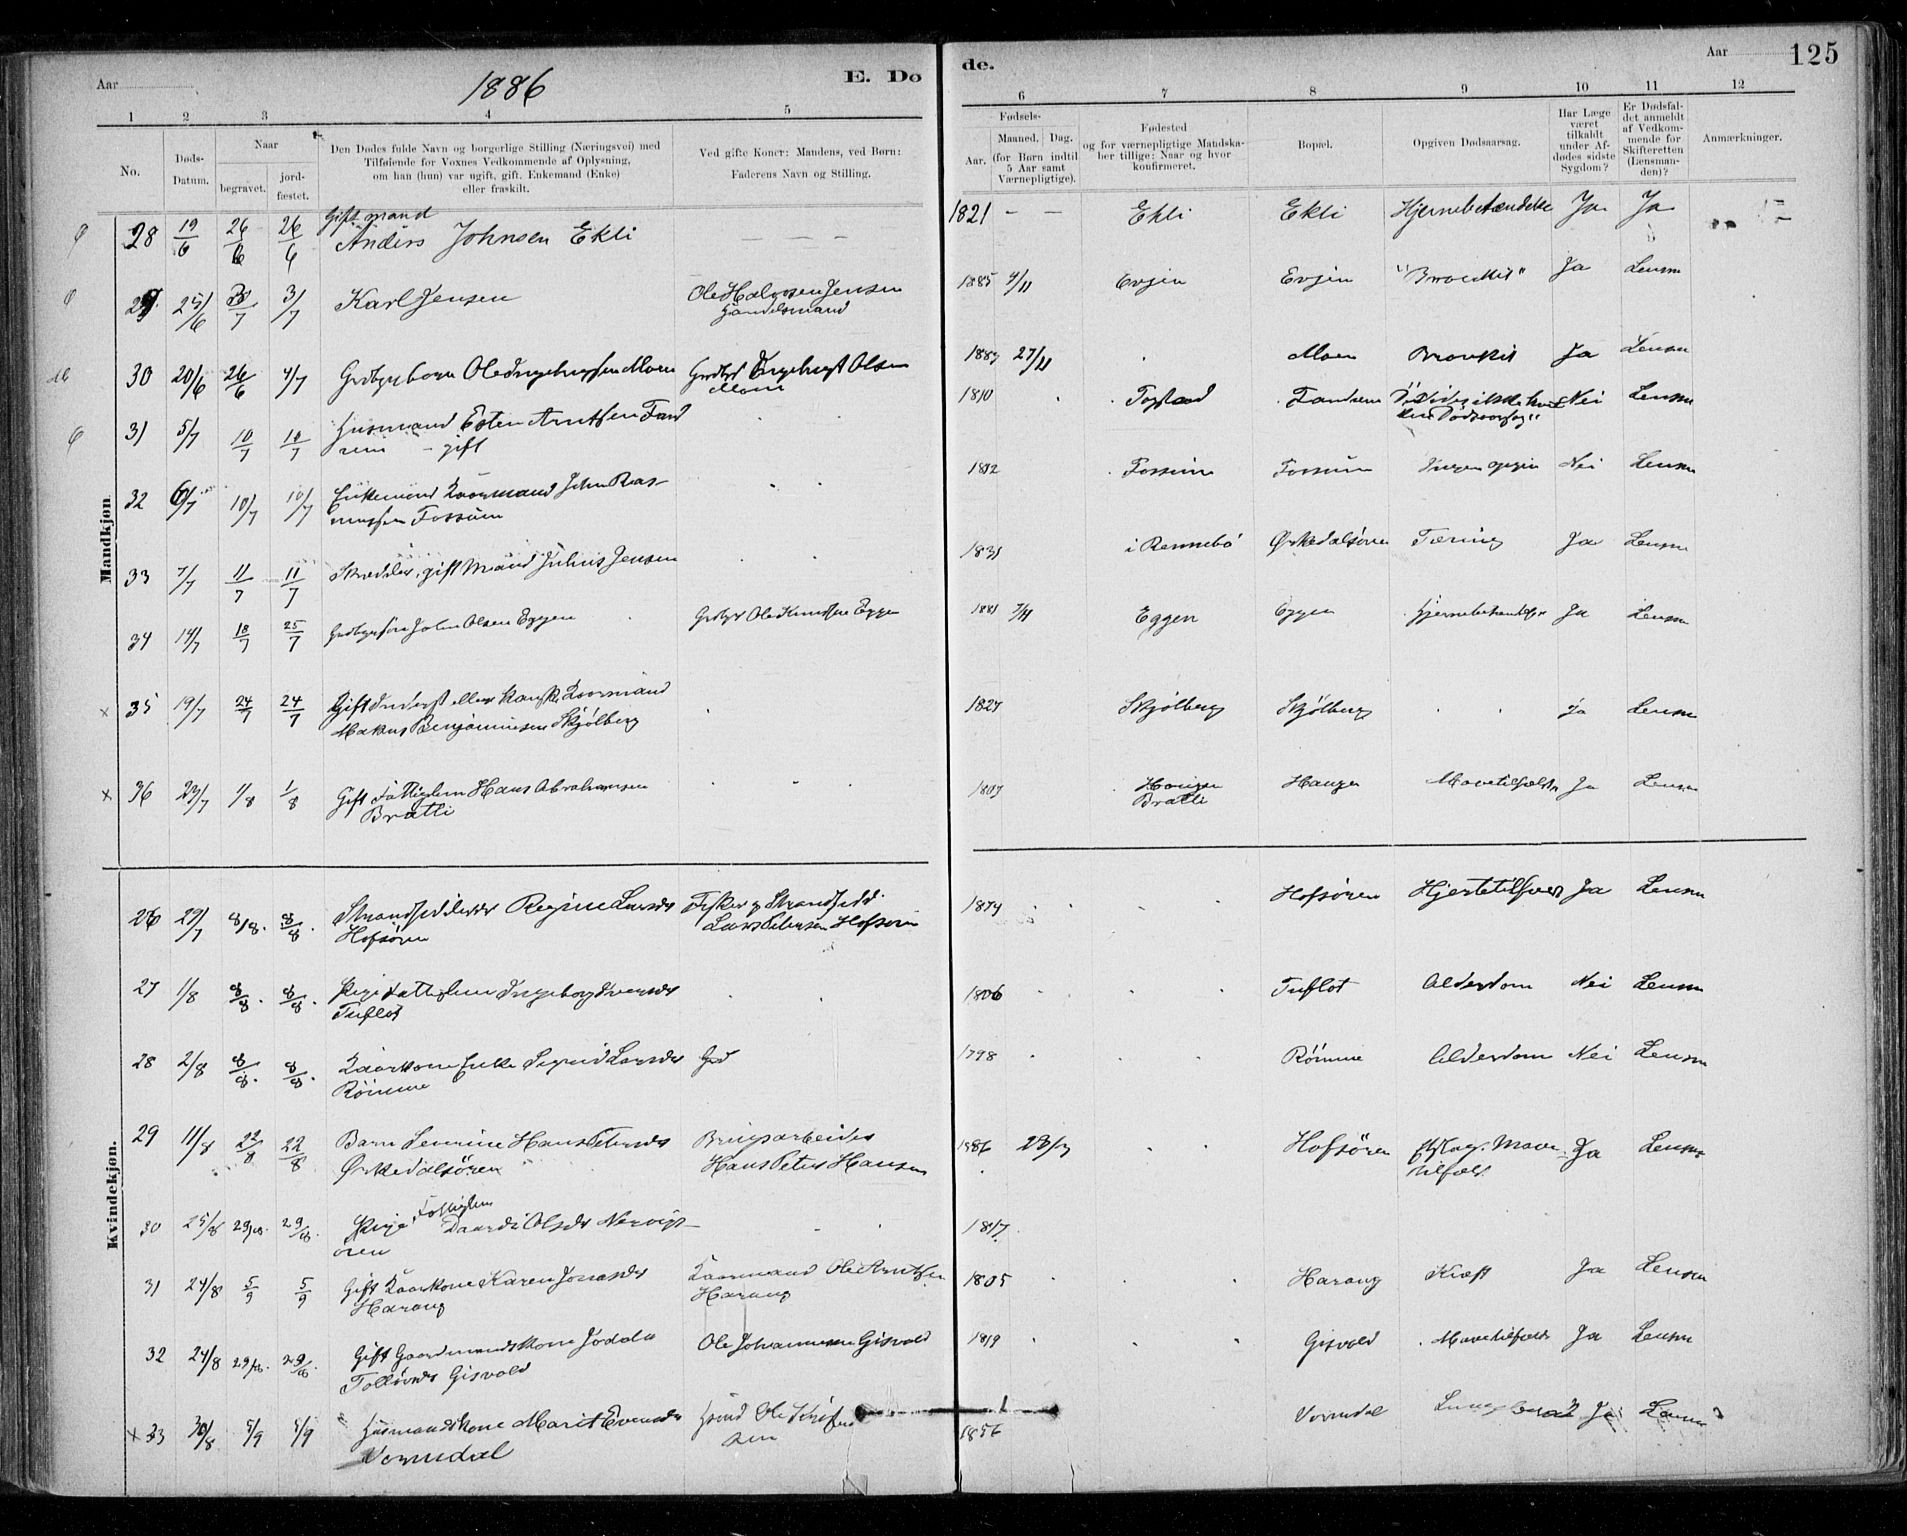 Aar
1886
E. Do
de.
Aar
125
1 2 3 4 5 6 7 8 9 10 11 12
No.
Døds-
Datum.
Naar
begravet.
jord-
fæstet.
Den Dødes fulde Navn og borgerlige Stilling (Næringsvei) med
Tilføiende for Voxnes Vedkommende af Oplysning,
om han (hun) var ugift, gift, Enkemand (Enke)
eller fraskilt.
Ved gifte Koner: Mandens, ved Børn:
Faderens Navn og Stilling.
Fødsels-
Aar.
Maaned. Dag.
(for Børn indtil
5 Aar samt
Værnepligtige).
Fødested
og for værnepligtige Mandska-
ber tillige: Naar og hvor
konfirmeret.
Bopæl.
Opgiven Dødsaarsag.
Har Læge
været
tilkaldt
under Af-
dødes sidste
Sygdom?
Er Dødsfal-
det anmeldt
af Vedkom-
mende for
Skifteretten
(Lensman-
den)?
Anmærkninger.
Mandkjøn
Gift mand
28 19/6 26/6 26/6 Anders Johnsen Ekli — — — 1821 — — Ekli Ekli Hjernebetændelse Ja Ja
29 25/6 3/7 3/7 Karl Jensen Ole Halvorsen Jensen 1885 4/11 Evjen Evjen "Bronkit" Ja Lensm
Handelsmand
30 20/6 26/6 4/7 Ole Ingebrigtsen Moen Ingebrigt Olsen 27/11 Moen Bronkit Ja Lensm
Moen
31 5/7 10/7 10/7 Husmand Esten Arntsen Fand 1810 Fandrem Nei Lensm
rem – gift
32 6/7 10/7 10/7 Enkemand Kaarmand John Ras- 1812 Fossum Fossum Ingen opgiv Nei Lensm
mussen Fossum
33 7/7 11/7 11/7 Skrædder, gift Mand Julius Jensen 1831 i Rennebo Ørkedalsøren Tæring Ja Lensm
34 14/7 18/7 25/7 John Olsen Eggen Ole Knudsen Eggen 1881 Eggen Eggen Ja Lensm
× 35 19/7 24/7 24/7 Gift Inderst eller kanske Kaarmand 1824 Skjølberg Skjølberg Ja Lensm
Benjaminsen Skjølberg
× 36 23/7 1/8 1/8 Gift Fattiglem Hans Abrahamsen Haugen Haugen Mavetilfælde Ja Lensm
Bratli Bratli
Kvindekjøn.
26 29/7 8/8. 8/8. Regine Larsdr Fisker og Strandsidd. 1874 Hofsören Hjertetilfæld Ja Lensm
Hofsören Lars Petersen Hofsören
27 1/8 8/8. 8/8. Pige Fattiglem Ingeborg Iversdr 1806 Tuflot Alderdom Nei Lensm
Tuflot
28 2/8 8/8. 8/8. Kaarkone Enke Sigrid Larsdr 1798 Römme Alderdom Nei Lensm
Römme
29 11/8 22/8 22/8 Barn Severine Hans Petersdr Brugsarbeider 1886 Hofsören Mave- Ja Lensm
Ørkedalsören Hans Peter Hansen tilfæld
Fattiglem
30 25/8 29/8. 29/8. Pige Olsdr Nervigs- 1817
ören
31 24/8 5/9 5/9 Gift Kaarkone Karen Jonasdr Kaarmand Ole Arntsen 1805 Harang Kræft Ja Lensm
Harang Harang
32 24/8 29/8. 29/8. Gift Gaardmandskone Ole Johannesen Gisvold 1819 Gisvold Mavetilfælde Ja Lensm
Gisvold
× 33 30/8 5/9 5/9 Husmandskone Marit Evensdr 1856 Vormdal Ja Lensm
Vormdal